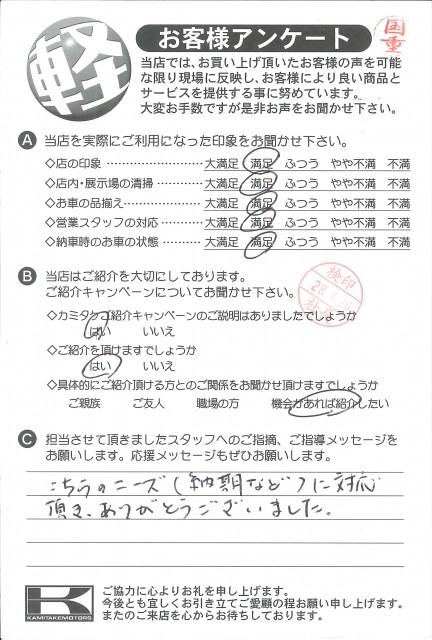 軽
お客様アンケート
国重
当店では、お買い上げ頂いたお客様の声を可能
な限り現場に反映し、お客様により良い商品と
サービスを提供する事に努めています。
大変お手数ですが是非お声をお聞かせ下さい。
A 当店を実際にご利用になった印象をお聞かせ下さい。
◇店の印象 大満足 満足 ふつう やや不満 不満
◇店内・展示場の清掃 大満足 満足 ふつう やや不満 不満
◇お車の品揃え 大満足 満足 ふつう やや不満 不満
◇営業スタッフの対応 大満足 満足 ふつう やや不満 不満
◇納車時のお車の状態 大満足 満足 ふつう やや不満 不満
B 当店はご紹介を大切にしております。
ご紹介キャンペーンについてお聞かせ下さい。
検印
28.4.
◇カミタケご紹介キャンペーンのご説明はありましたでしょうか
はい いいえ
◇ご紹介を頂けますでしょうか
はい いいえ
◇具体的にご紹介頂ける方とのご関係をお聞かせ頂けますでしょうか
ご親族 ご友人 職場の方 機会があれば紹介したい
C 担当させて頂きましたスタッフへのご指摘、ご指導メッセージを
お願いします。応援メッセージもぜひお願いします。
こちらのニーズ(納期など)に対応
頂き、ありがとうございました。
K
KAMITAKEMOTORS
ご協力に心よりお礼を申し上げます。
今後とも宜しくお引き立てご愛顧の程お願い申し上げます。
またのご来店を心からお待ちしております。